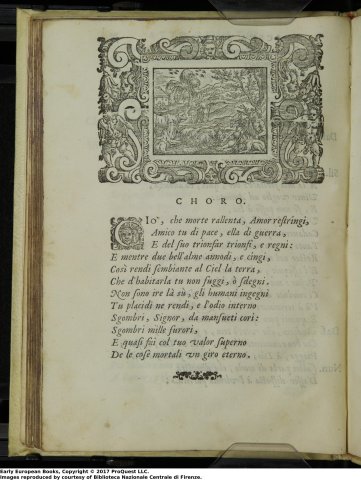 CHORO.
CIò, che morte rallenta, Amor restringi,
Amico tu di pace, ella di guerra,
E del suo trionfar trionfi, e regni:
E mentre due bell'alme annodi, e cingi,
Così rendi sembiante al Ciel la terra,
Che d'habitarla tu non fuggi, ò sdegni.
Non sono ire là sù, gli humani ingegni
Tu placidi ne rendi, e l'odio interno
Sgombri, Signor, da mansueti cori:
Sgombri mille furori,
E quasi fai col tuo valor superno
De le cose mortali vn giro eterno.
Early European Books, Copyright © 2017 ProQuest LLC.
Images reproduced by courtesy of Biblioteca Nazionale Centrale di Firenze.